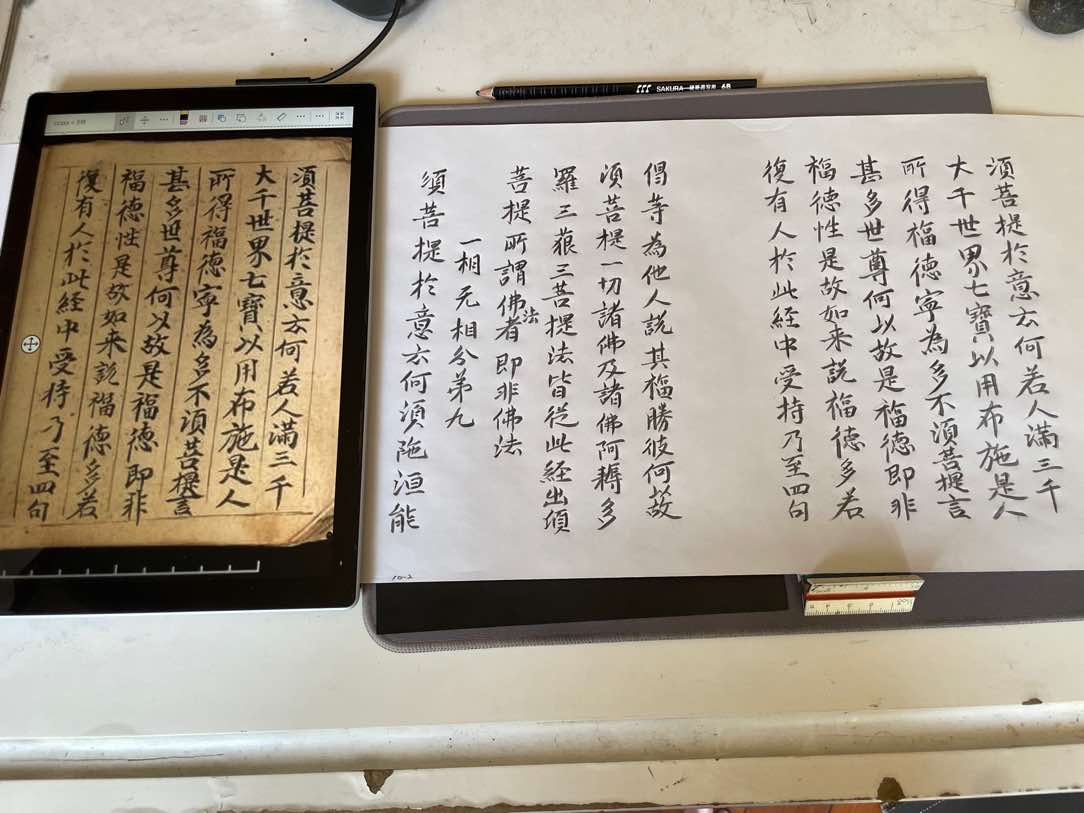 須菩提於意云何若人滿三千
大千世界七寶以用布施是人
所得福德寧為多不須菩提言
甚多世尊何以故是福德即非
福德性是故如来說福德多若
復有人於此経中受持乃至四句
SAKURA
須菩提於意云何若人滿三千
大千世界七寶以用布施是人
所得福德寧為多不須菩提言
甚多世尊何以故是福德即非
福德性是故如来説福德多若
復有人於此経中受持乃至四句
偈等為他人説其福勝彼何故
須菩提一切諸佛及諸佛阿耨多
羅三菔三菩提法皆從此経出須
菩提所謂佛法者即非佛法
一相无相分第九
須菩提於意云何須陁洹能
10-2